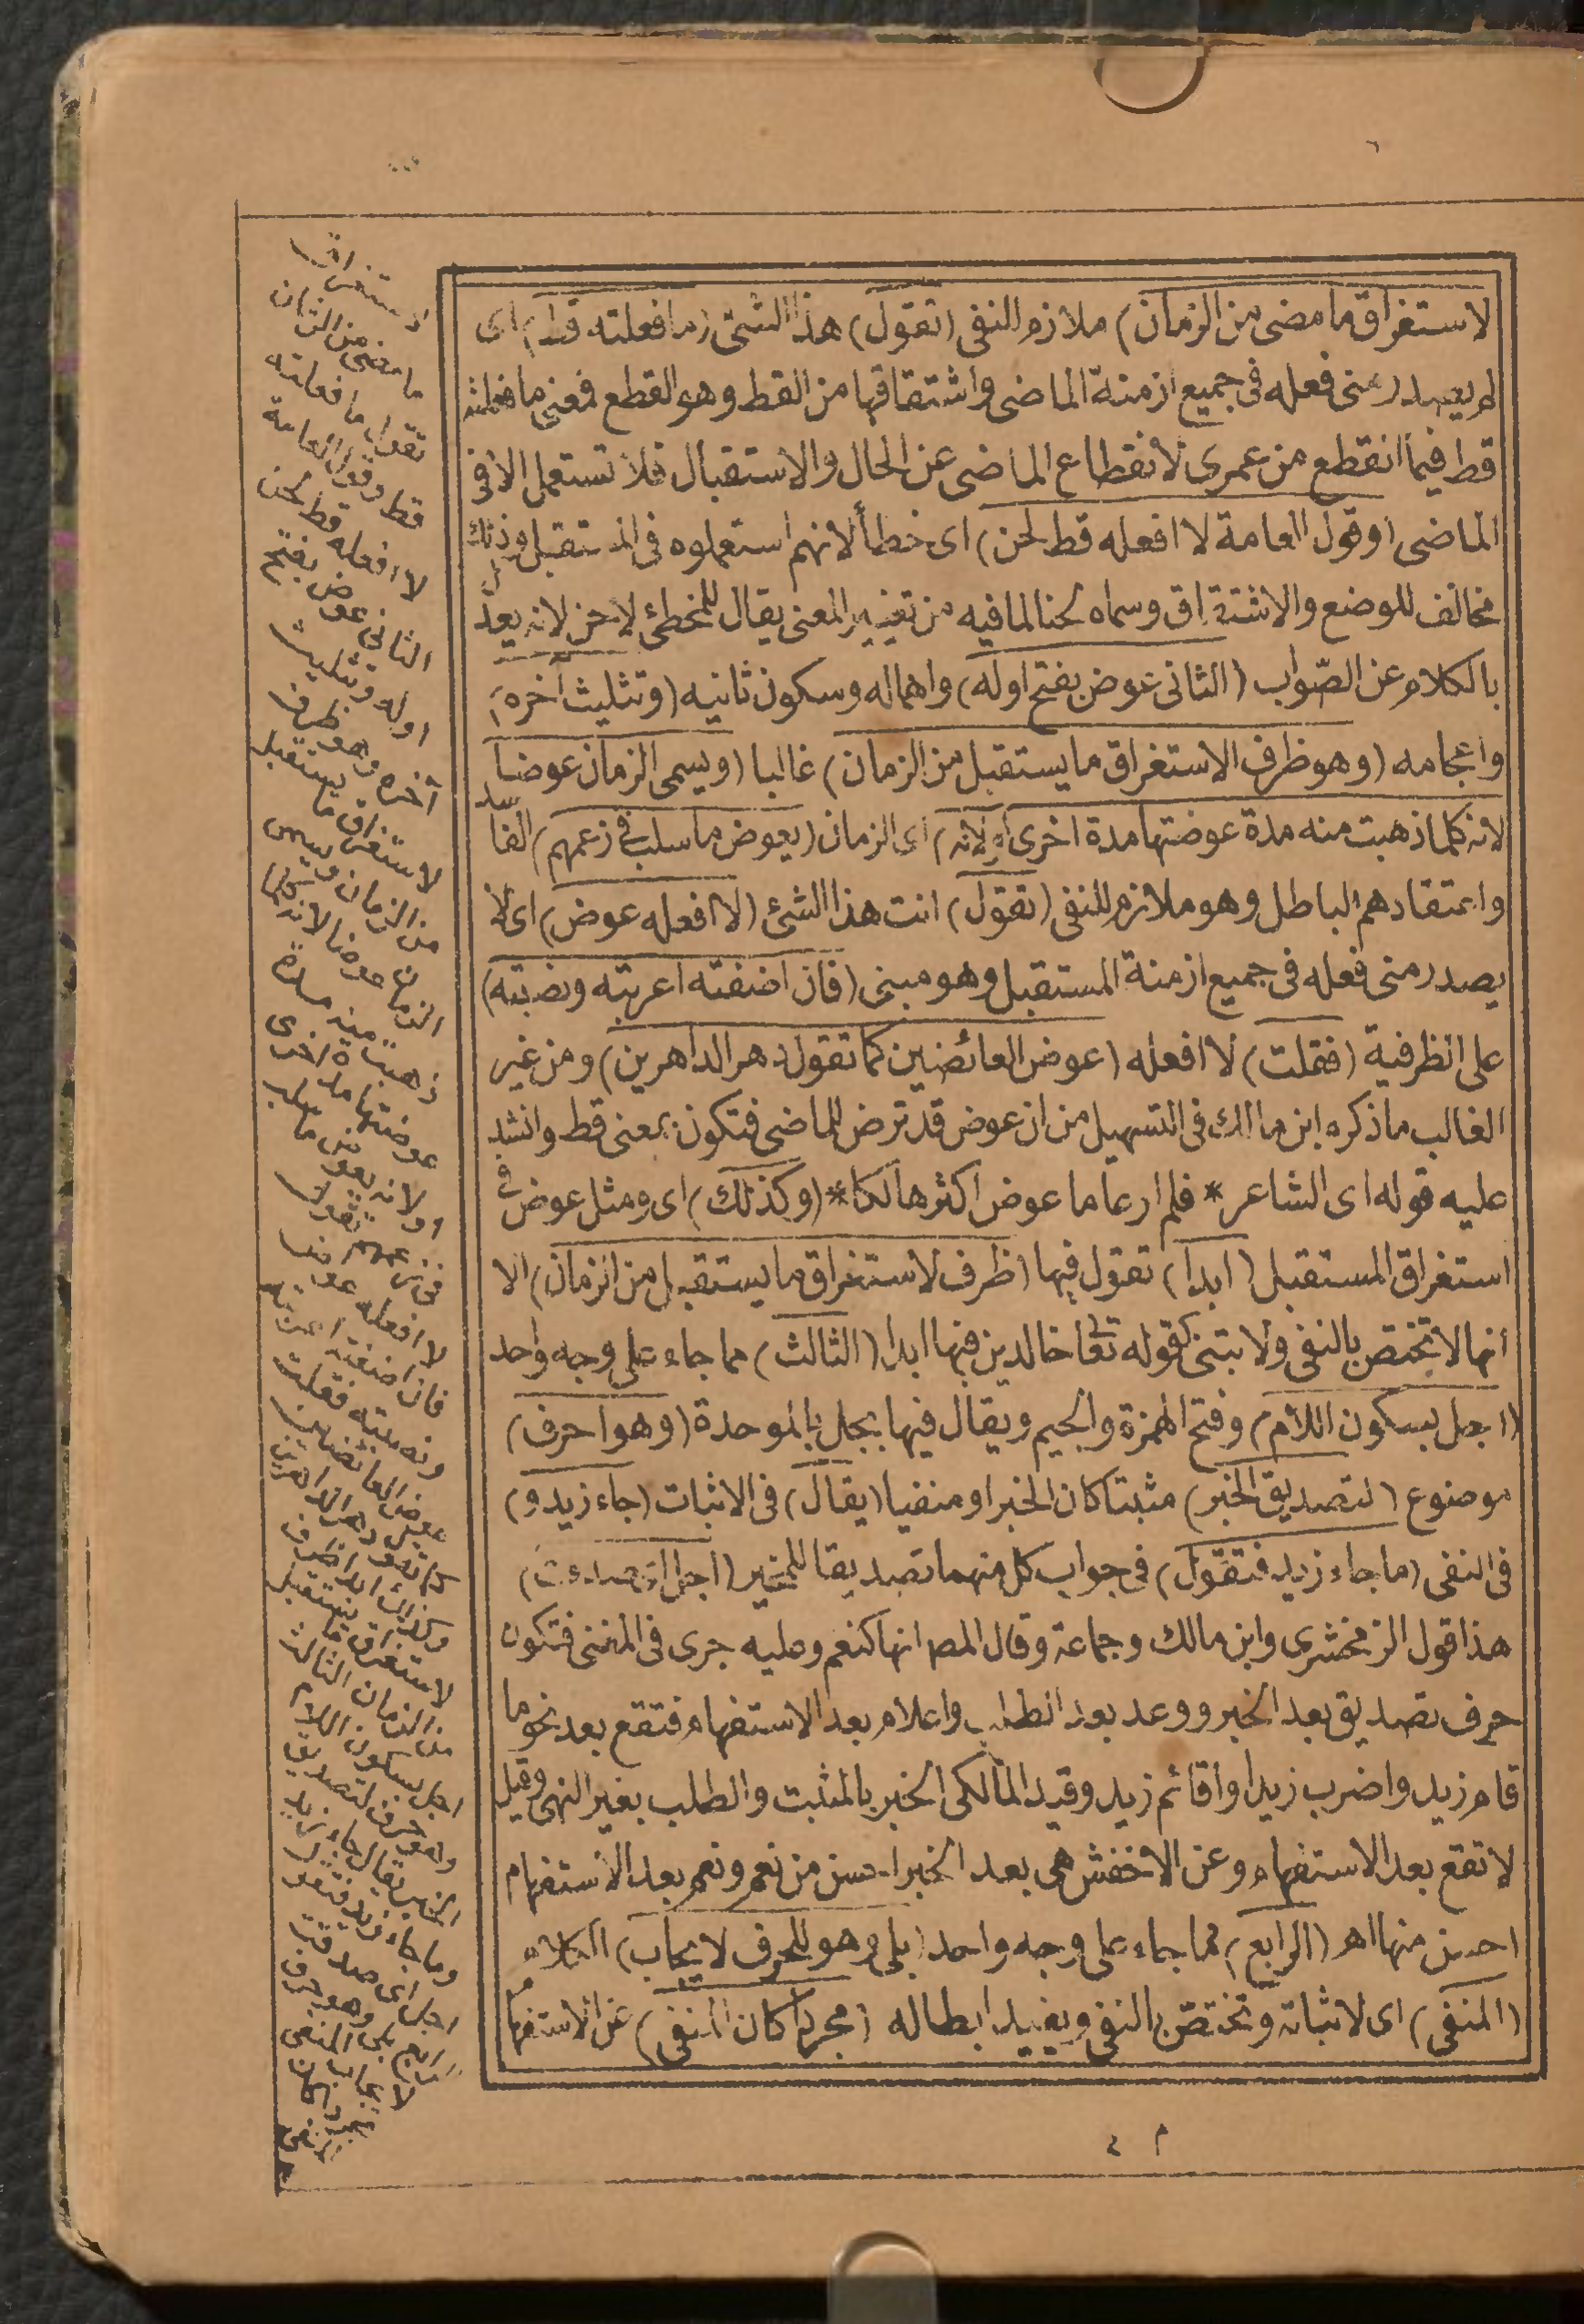 لاستغراق ما مضى من الزمان) ملازم للنفى (تقول) هذا الشئ (ما فعلته قط) اى
لم يصدر منى فعله فى جميع ازمنة الماضى واشتقاقها من القط وهو القطع فمعنى ما فعلته
قط فيما انقطع من عمرى لانقطاع الماضى عن الحال والاستقبال فلا تستعمل الا فى
الماضى (وقول العامة لا افعله قط لحن) اى خطأ لانهم استعملوه فى المستقبل وذلك
مخالف للوضع والاشتقاق وسماه لحنا لما فيه من تغيير المعنى يقال للمخطئ لاحن لانه يعدل
بالكلام عن الصّواب (الثانى عوض بفتح اوله) واهماله وسكون ثانيه (وتثليث آخره)
واعجامه (وهو ظرف الاستغراق ما يستقبل من الزمان) غالبا (ويسمى الزمان عوضا
لانه كلما ذهبت منه مدة عوضتها مدة اخرى او لانه) اى الزمان (يعوض ما سلب فى زعمهم) الفاسد
واعتقادهم الباطل وهو ملازم للنفى (تقول) انت هذا الشئ (لا افعله عوض) اى لا
يصدر منى فعله فى جميع ازمنة المستقبل وهو مبنى (فان اضفته اعربته ونصبته)
على الظرفية (فقلت) لا افعله (عوض العائضين كما تقول دهر الداهرين) ومن غير
الغالب ما ذكره ابن مالك فى التسهيل من ان عوض قد ترض للماضى فتكون بمعنى قط وانشد
عليه قوله اى الشاعر * فلم ار عاما عوض اكثر هالكا * (وكذلك) اى ومثل عوض فى
استغراق المستقبل (ابدا) تقول فيها (ظرف لاستغراق ما يستقبل من الزمان) الا
انها لا تختص بالنفى ولا تبنى كقوله تعا خالدين فيها ابدا (الثالث) مما جاء على وجه واحد
(اجل بسكون اللام) وفتح الهمزة والجيم ويقال فيها بجل بالموحدة (وهو احرف)
موضوع (لتصديق الخبر) مثبتا كان الخبر او منفيا (يقال) فى الاثبات (جاء زيد و)
فى النفى (ما جاء زيد فتقول) فى جواب كل منهما تصديقا للمخبر (اجل اى صدقت)
هذا قول الزمخشرى وابن مالك وجماعة وقال المص انها كنعم وعليه جرى فى المغنى فتكون
حرف تصديق بعد الخبر ووعد بعد الطلب واعلام بعد الاستفهام فتقع بعد نحو ما
قام زيد واضرب زيدا واقائم زيد وقيد المالكى الخبر بالمثبت والطلب بغير النهى وقيل
لا تقع بعد الاستفهام وعن الاخفش هى بعد الخبر احسن من نعم ونعم بعد الاستفهام
احسن منها اهـ (الرابع) مما جاء على وجه واحد (بلى وهو للحرف لايجاب) الكلام
(المنفى) اى لاثباته وتختص بالنفى ويفيد ابطاله (مجردا كان المنفى) عن الاستفهام
لاستغراق
ما مضى من الزمان
تقول ما فعلته
قط وقول العامة
لا افعله قط لحن
الثانى عوض بفتح
اوله وتثليث
آخره وهو ظرف
لاستغراق ما يستقبل
من الزمان ويسمى
الزمان عوضا لانه كلما
ذهبت منه مدة
عوضتها مدة اخرى
او لانه يعوض ما سلب
فى زعمهم تقول
لا افعله عوض
فان اضفته اعربته
ونصبته فقلت
عوض العائضين
كما تقول دهر الداهرين
وكذلك ابدا ظرف
لاستغراق ما يستقبل
من الزمان الثالث
اجل بسكون اللام
وهو حرف لتصديق
الخبر يقال جاء زيد
وما جاء زيد فتقول
اجل اى صدقت
الرابع بلى وهو حرف
لايجاب المنفى
مجردا كان
المنفى